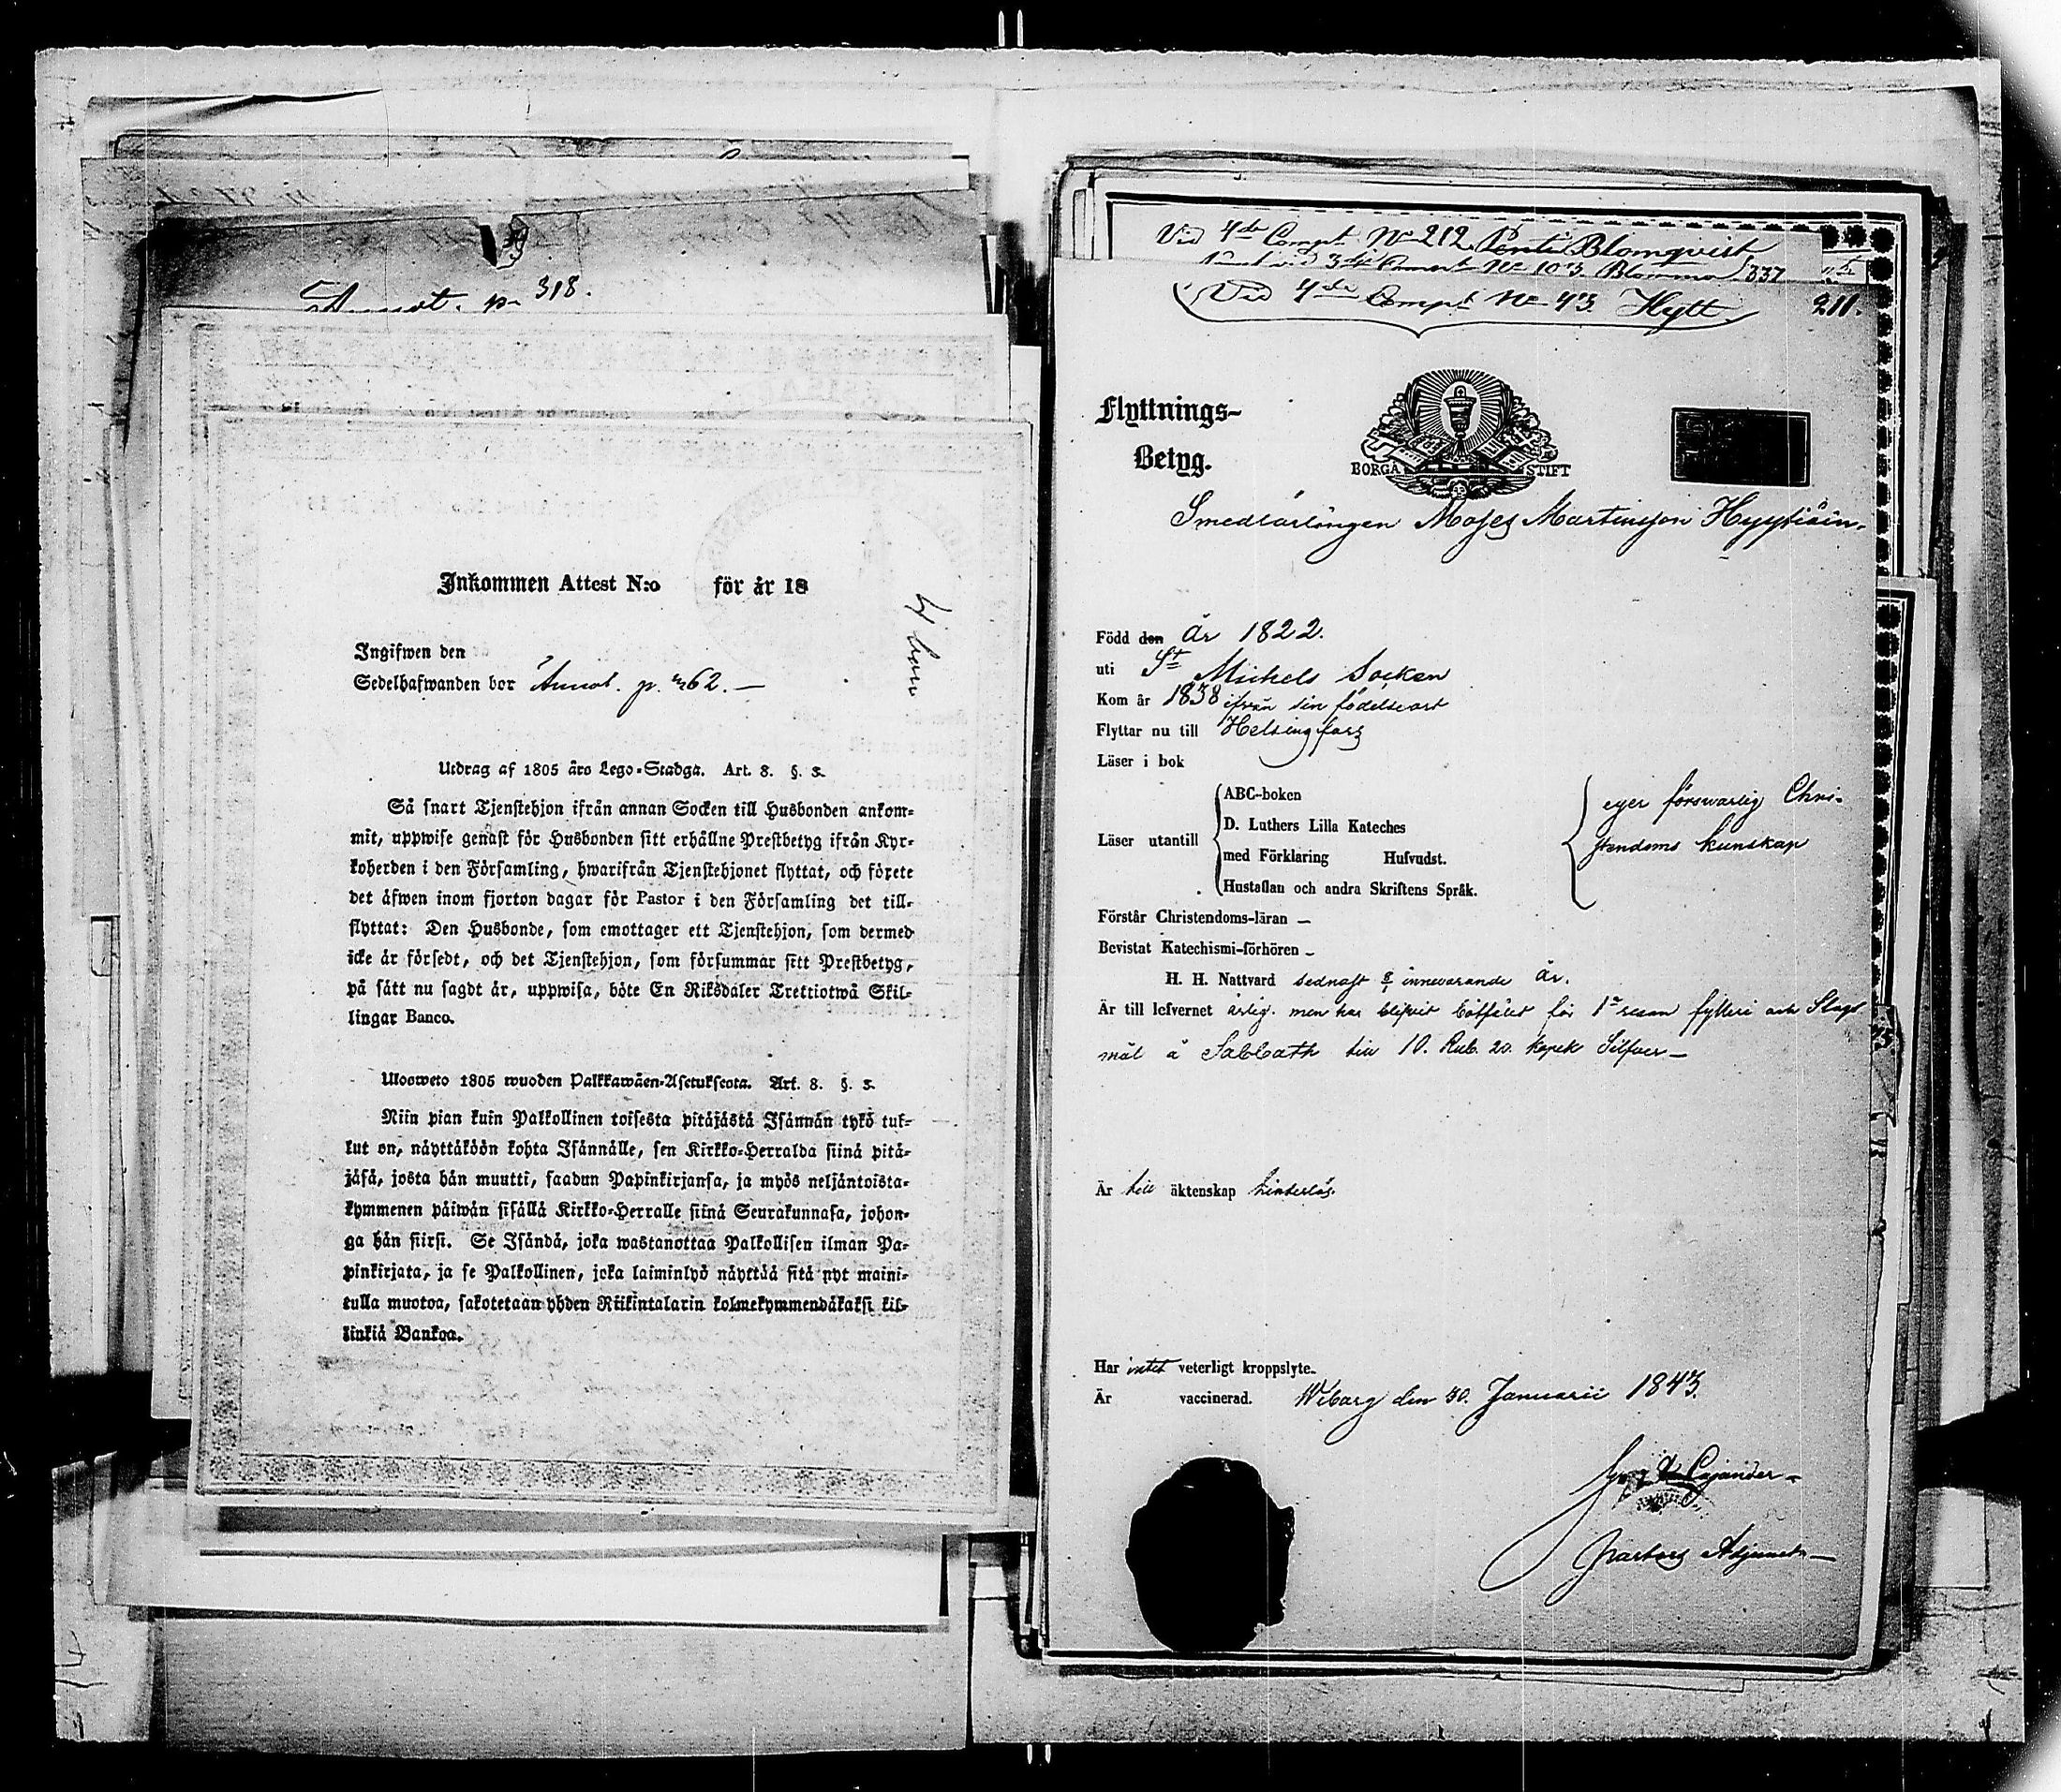 Annot. p. 318.
Inkommen Attest N:o för år 18
Ingifwen den
Sedelhafwanden bor Annot. p. 262. —
Utdrag af 1805 års Lego-Stadga. Art. 8. §. 3.
Så snart Tjenstehjon ifrån annan Socken till Husbonden ankom-
mit, uppwise genast för Husbonden sitt erhållne Prestbetyg ifrån Kyr-
koherden i den Församling, hwarifrån Tjenstehjonet flyttat, och förete
det äfwen inom fjorton dagar för Pastor i den Församling det till-
flyttat: Den Husbonde, som emottager ett Tjenstehjon, som dermed
icke är försedt, och det Tjenstehjon, som försummar sitt Prestbetyg,
på sätt nu sagdt är, uppwisa, böte En Riksdaler Trettiotwå Skil-
lingar Banco.
Ulosweto 1805 wuoden Palkkawäen-Asetuksesta. Art. 8. §. 3.
Niin pian kuin Palkollinen toisesta pitäjästä Isännän tykö tul-
lut on, näyttäköön kohta Isännälle, sen Kirkko-Herralda siinä pitä-
jäsä, josta hän muutti, saadun Papinkirjansa, ja myös neljäntoista-
kymmenen päiwän sisällä Kirkko-Herralle siinä Seurakunnasa, johon-
ga hän siirsi. Se Isändä, joka wastanottaa Palkollisen ilman Pa-
pinkirjata, ja se Palkollinen, joka laiminlyö näyttää sitä nyt maini-
tulla muotoa, sakotetaan yhden Riikintalarin kolmekymmendäkaksi kil-
linkiä Bankoa.
Vid 4de Comp. No 212 Pentti Blomqvist
3dje No 103 Blomma 337
Vid 4de Compt No 43. Hytt 211.
Flyttnings-
Betyg.
BORGÅ STIFT
Smedlärlingen Moses Martinsson Hyytiäin.
Född den År 1822.
uti St Michels Socken
Kom år 1838 ifrån sin födelseort
Flyttar nu till Helsingfors
Läser i bok
ABC-boken
D. Luthers Lilla Kateches
Läser utantill
med Förklaring Hufvudst.
Hustaflan och andra Skriftens Språk.
eger försvarlig Chri-
stendoms kunskap
Förstår Christendoms-läran —
Bevistat Katechismi-förhören —
H. H. Nattvard sednast innevarande år.
Är till lefvernet ärlig. men har blifvit bötfäld för 1a resan fylleri och Slags
mål å Sabbath till 10. Rub. 20. Kopek Silfver —
Är till äktenskap hinderlös.
Har intet veterligt kroppslyte.
Är vaccinerad. Wiborg den 30. Januarii 1843.
Cajander
Pastors Adjunct —